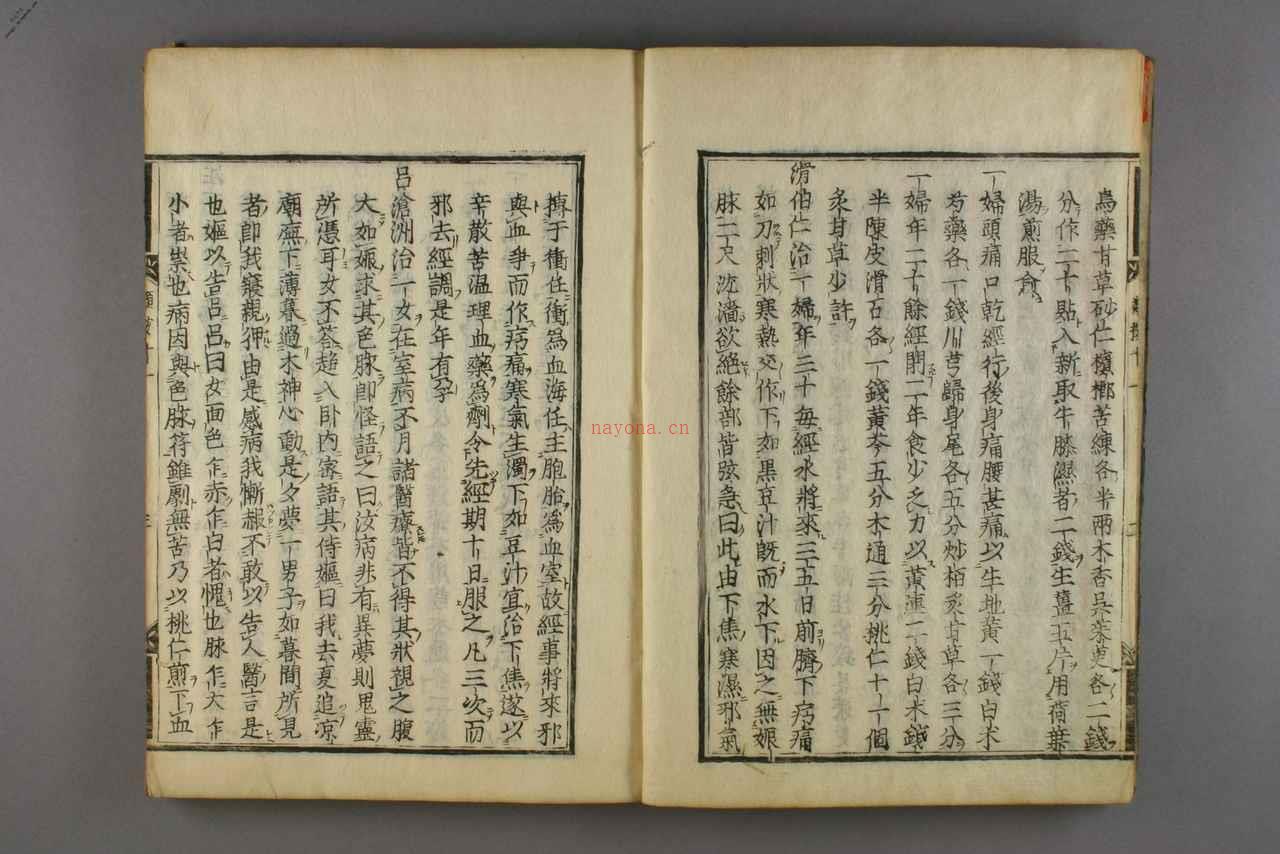 烏藥甘草砂仁檳榔苦練各半兩木香吳茱萸各二錢
分作二十貼入新取牛膝濕者二錢生薑五片用荷葉
湯煎服愈
一婦頭痛口乾經行後身痛腰甚痛以生地黃一錢白朮
芍藥各一錢川芎歸身尾各五分炒栢炙甘草各三分
一婦年二十餘經閉二年食少乏力以黃連二錢白朮錢
半陳皮滑石各一錢黃芩五分木通三分桃仁十一個
炙甘草少許
滑伯仁治一婦年三十每經水將來三五日前臍下㽲痛
如刀刺狀寒熱交作下如黑豆汁既而水下因之無娠
脉二尺沈濇欲絕餘部皆弦急曰此由下焦寒濕邪氣
搏于衝任衝爲血海任主胞胎爲血室故經事將來邪
與血爭而作㽲痛寒氣生濁下如豆汁宜治下焦遂以
辛散苦温理血藥爲劑令先經期十日服之凡三次而
邪去經調是年有孕
呂滄洲治一女在室病不月諸醫療皆不得其狀視之腹
大如娠求其色脉卽怪語之曰汝病非有異夢則鬼靈
所憑耳女不荅趍入卧内密語其侍嫗曰我去夏追凉
廟廡下薄暮過木神心動是夕夢一男子如暮間所見
者卽我寢親狎由是感病我慚赧不敢以告人醫言是
也嫗以告呂呂曰女面色乍赤乍白者愧也脉乍大乍
小者祟也病因與色脉符雖劇無苦乃以桃仁煎下血
nayona.cn